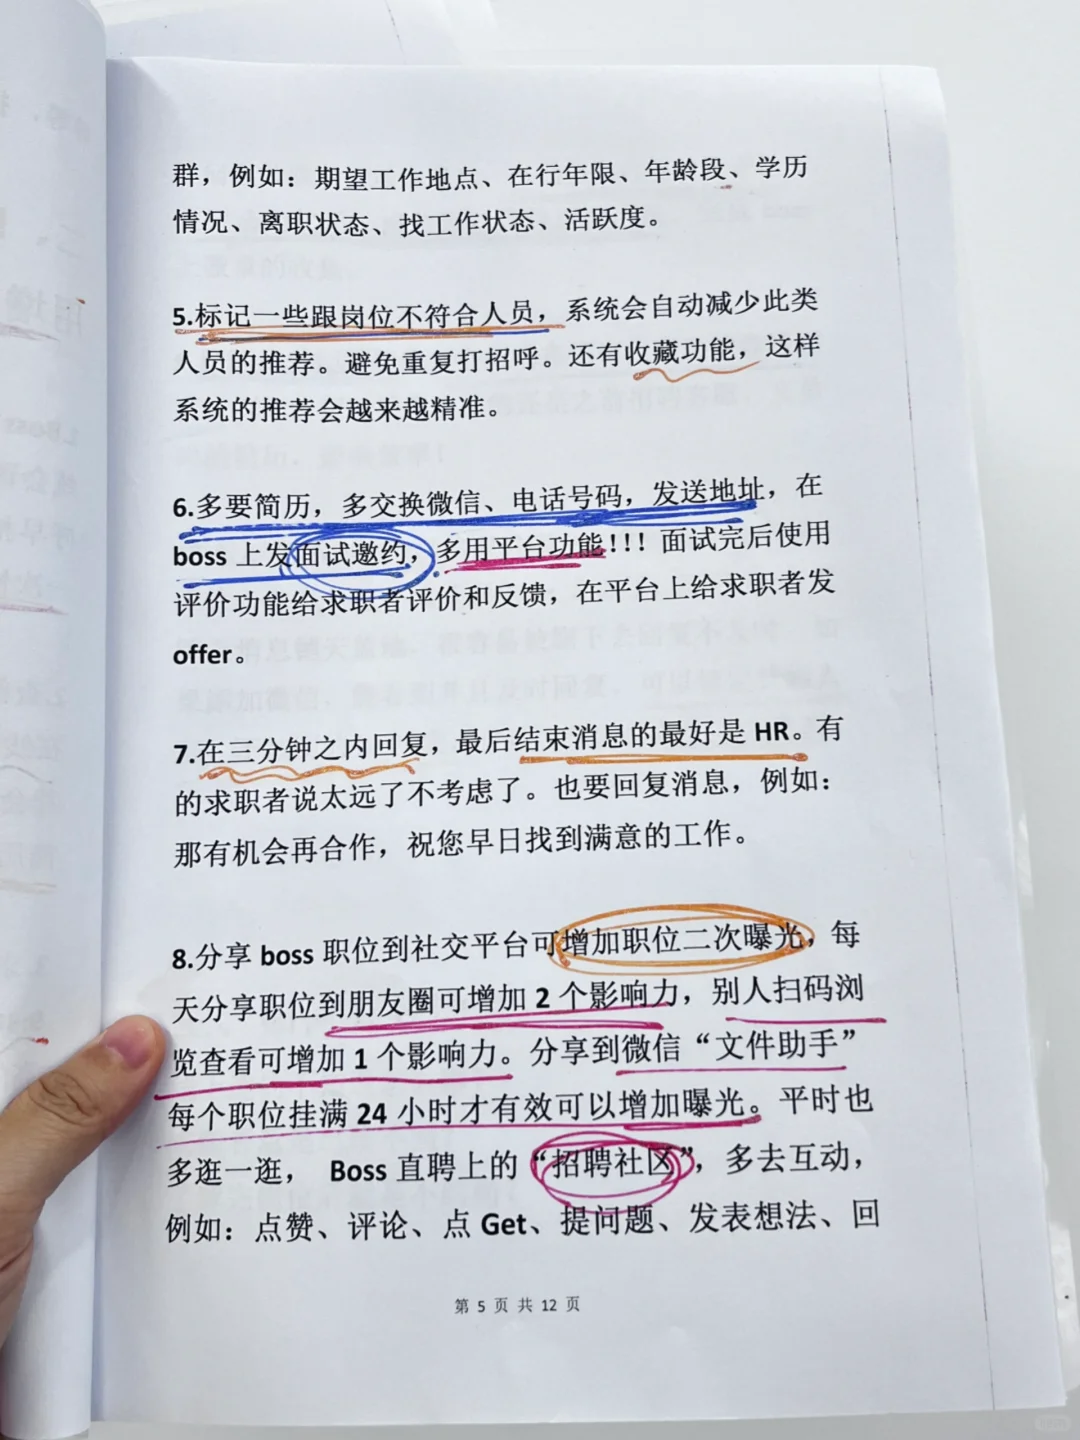 群，例如：期望工作地点、在行年限、年龄段、学历
情况、离职状态、找工作状态、活跃度。
5.标记一些跟岗位不符合人员，系统会自动减少此类
人员的推荐。避免重复打招呼。还有收藏功能，这样
系统的推荐会越来越精准。
6.多要简历，多交换微信、电话号码，发送地址，在
boss 上发面试邀约，多用平台功能！！！面试完后使用
评价功能给求职者评价和反馈，在平台上给求职者发
offer。
7.在三分钟之内回复，最后结束消息的最好是 HR。有
的求职者说太远了不考虑了。也要回复消息，例如：
那有机会再合作，祝您早日找到满意的工作。
8.分享 boss 职位到社交平台可增加职位二次曝光，每
天分享职位到朋友圈可增加 2 个影响力，别人扫码浏
览查看可增加 1 个影响力。分享到微信“文件助手”
每个职位挂满 24 小时才有效可以增加曝光。平时也
多逛一逛， Boss 直聘上的“招聘社区”，多去互动，
例如：点赞、评论、点 Get、提问题、发表想法、回
第 5 页 共 12 页